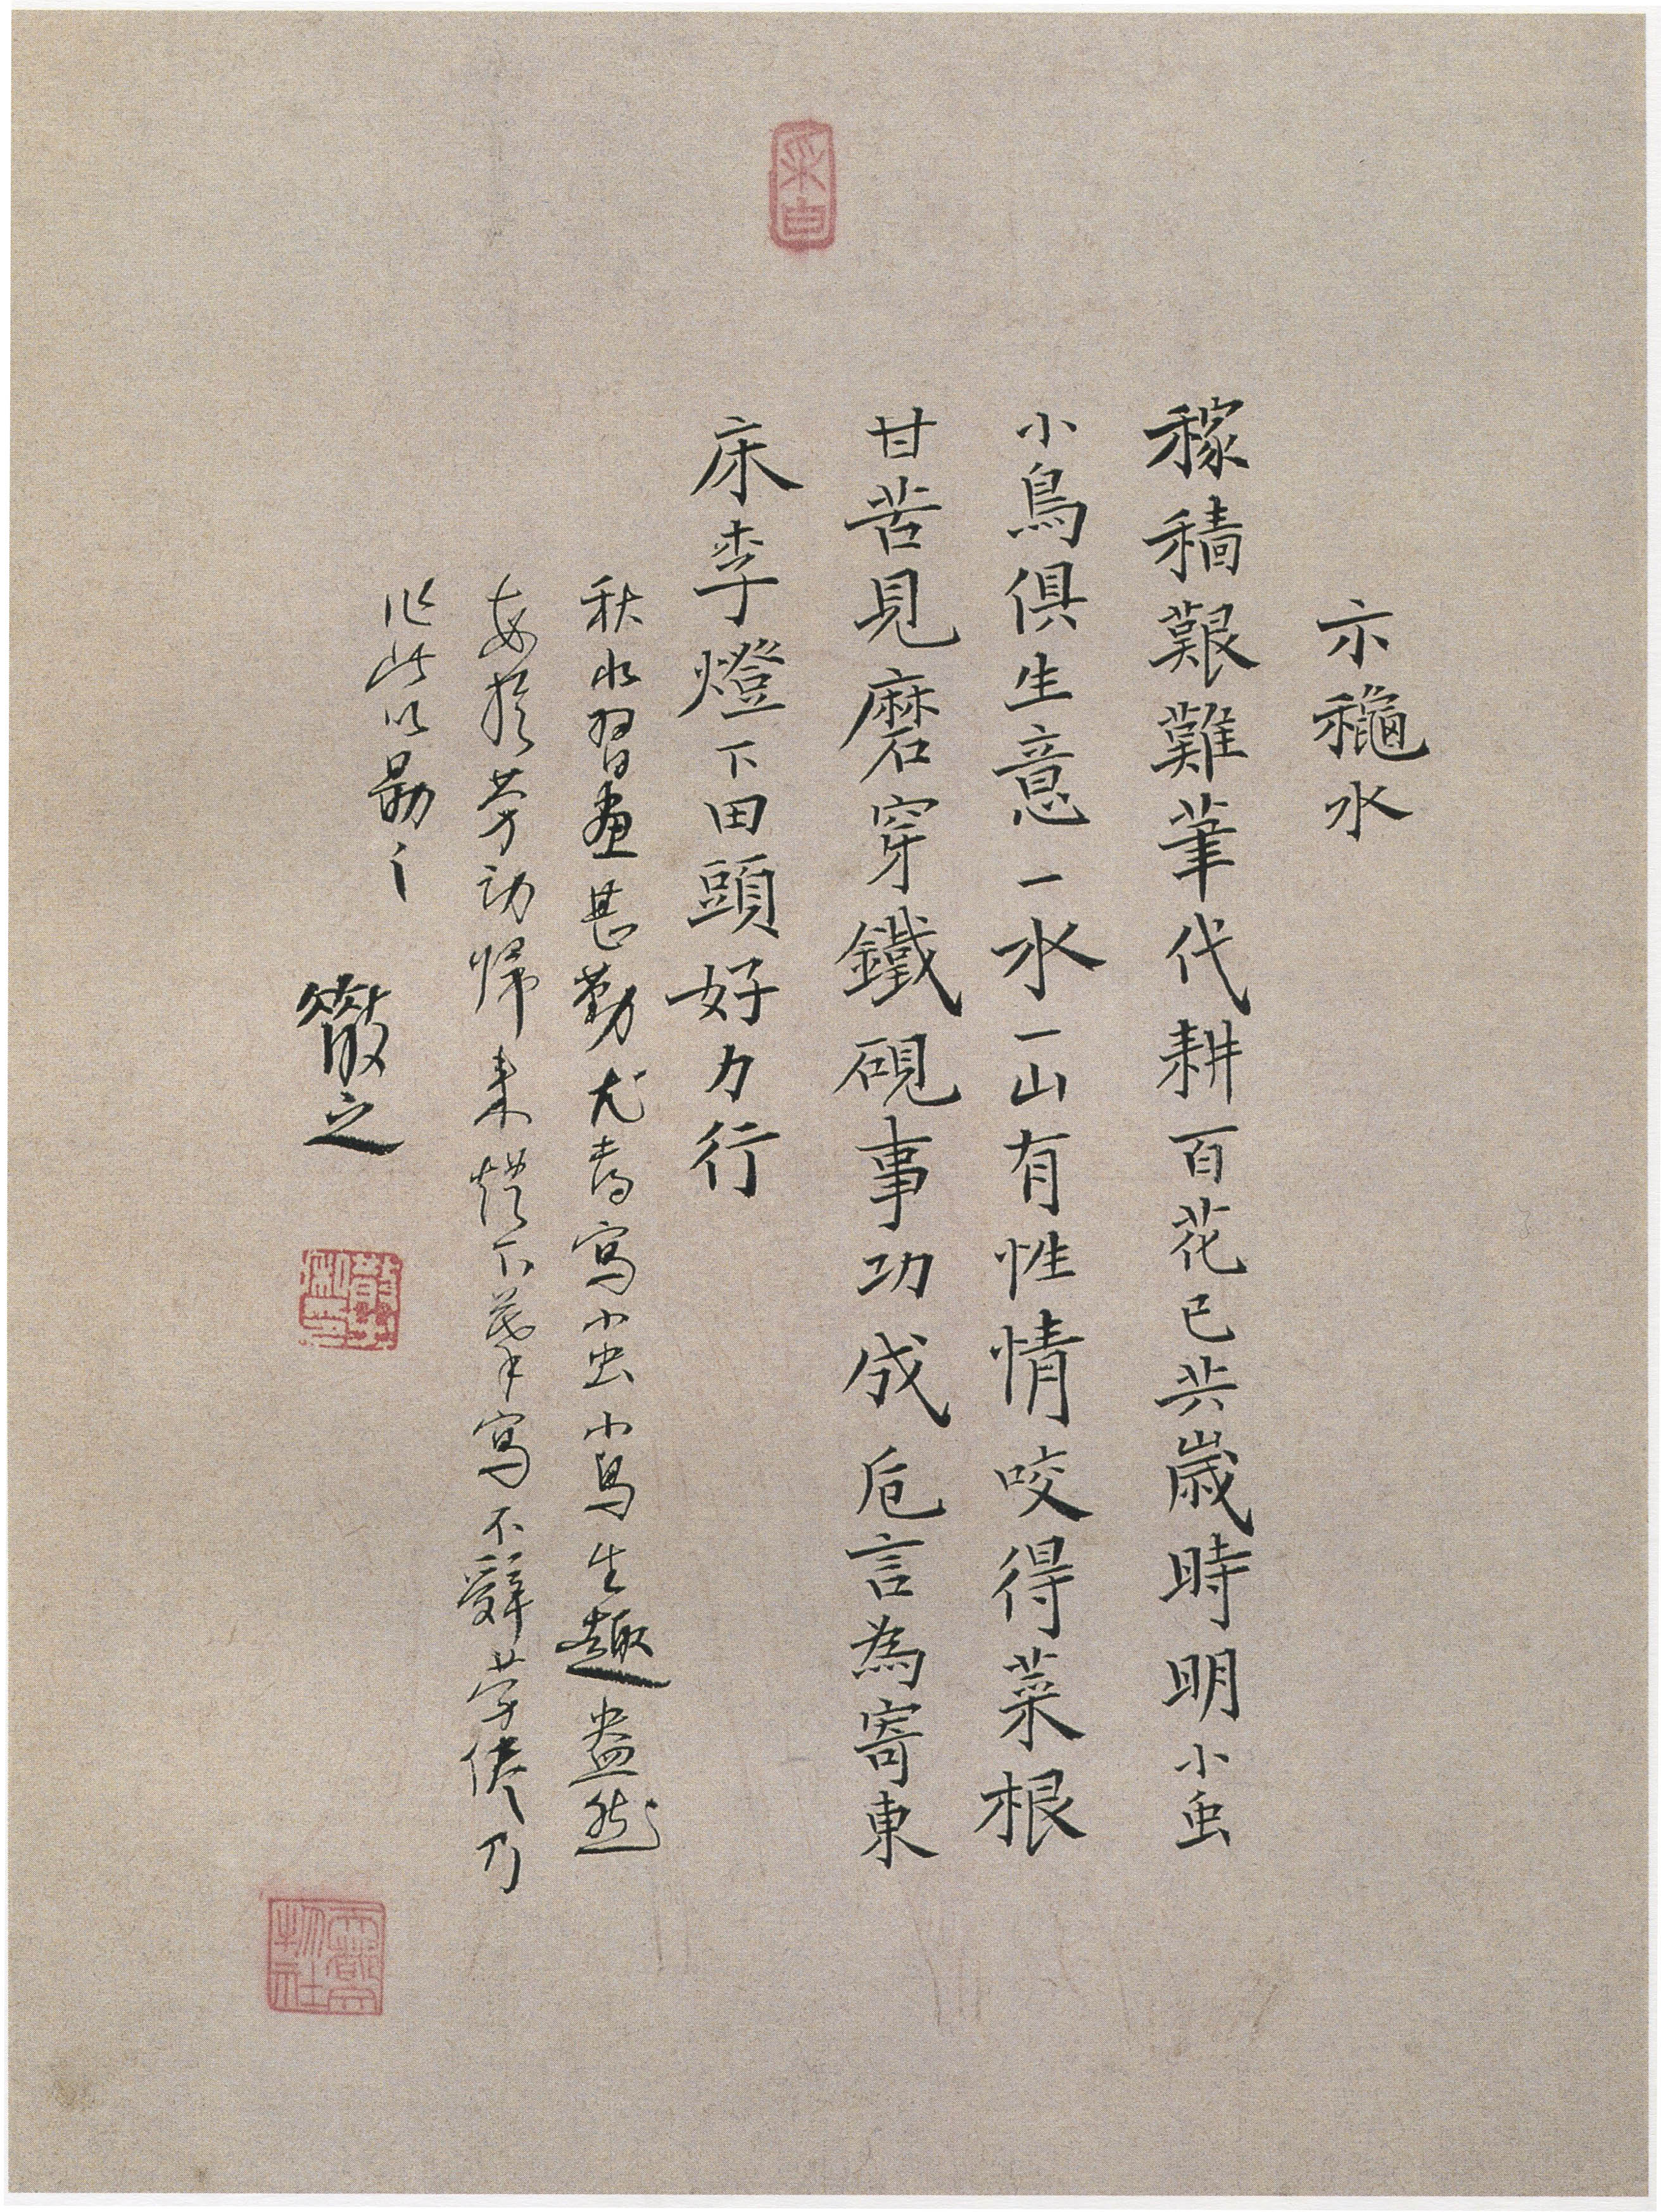 示龝水
稼穡艱難筆代耕百花已共歲時明小虫
小鳥俱生意一水一山有性情咬得菜根
甘苦見磨穿鐵硯事功成卮言為寄東
床李燈下田頭好力行
秋水習畫甚勤尤喜寫小虫小鳥生趣盎然
每於勞動歸來燈下摹寫不辭勞倦乃
作此以勗之
散之